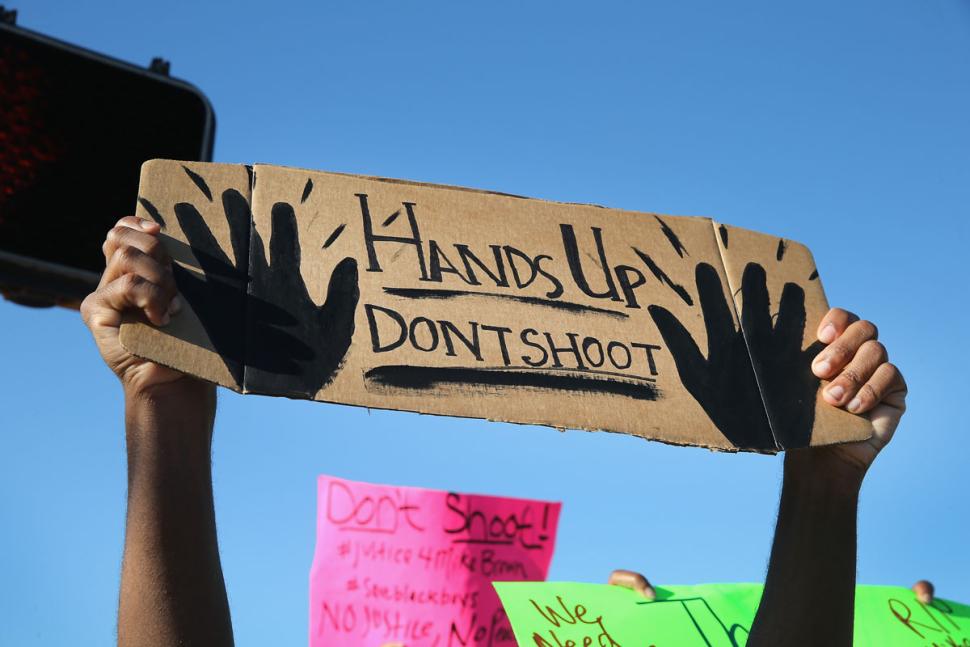 HANDS UP
DONT SHOOT
Don't Shoot!
#justice4MikeBrown
#SaveblackBoys
NO JUSTICE, No Pea
We
Need
Th
RIP